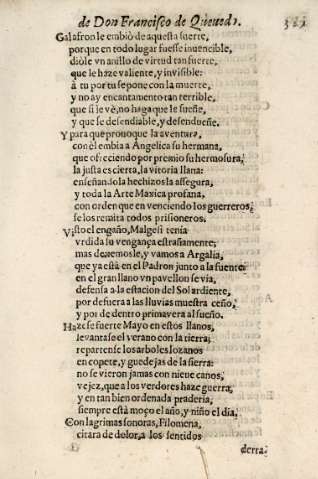 de Don Francisco de Queuedo.
Galafron le embiò de aquesta suerte,
porque en todo lugar fuesse inuencible,
diòle vn anillo de virtud tan fuerte,
que le haze valiente, y inuisible:
à tu por tu se pone con la muerte,
y no ay encantamento tan terrible,
que si le vè, no haga que le sueñe,
y que se desendiable, y desendueñe.
Y para que prouoque la auentura,
con èl embia à Angelica su hermana,
que ofreciendo por premio su hermosura,
la justa es cierta, la vitoria llana:
enseñandola hechizos la assegura,
y toda la Arte Maxica profana,
con orden que en venciendo los guerreros,
se los remita todos prisioneros.
Visto el engaño, Malgesi tenia
vrdida su vengança estrañamente;
mas dexemosle, y vamos a Argalia,
que ya està en el Padron junto a la fuente:
en el gran llano vn pauellon se via,
defensa a la estacion del Sol ardiente,
por defuera a las lluuias muestra ceño,
y por de dentro primauera al sueño.
Hazese fuerte Mayo en estos llanos,
leuantase el verano con la tierra,
repartense los arboles lozanos
en copete, y guedejas de la sierra:
no se vieron jamas con nieue canos,
vejez, que a los verdores haze guerra,
y en tan bien ordenada praderia,
siempre està moço el año, y niño el dia.
Con lagrimas sonoras, Filomena,
citara de dolor, a los sentidos
derra-